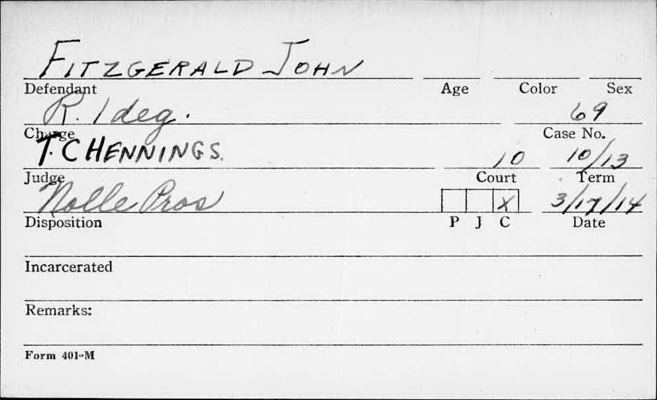 FITZGERALD JOHN
Defendant Age Color Sex
R. 1 deg. 69
Charge Case No.
T. C HENNINGS. 10 10/13
Judge Court Term
Nolle Pros X 3/17/14
Disposition P J C Date
Incarcerated
Remarks:
Form 401-M